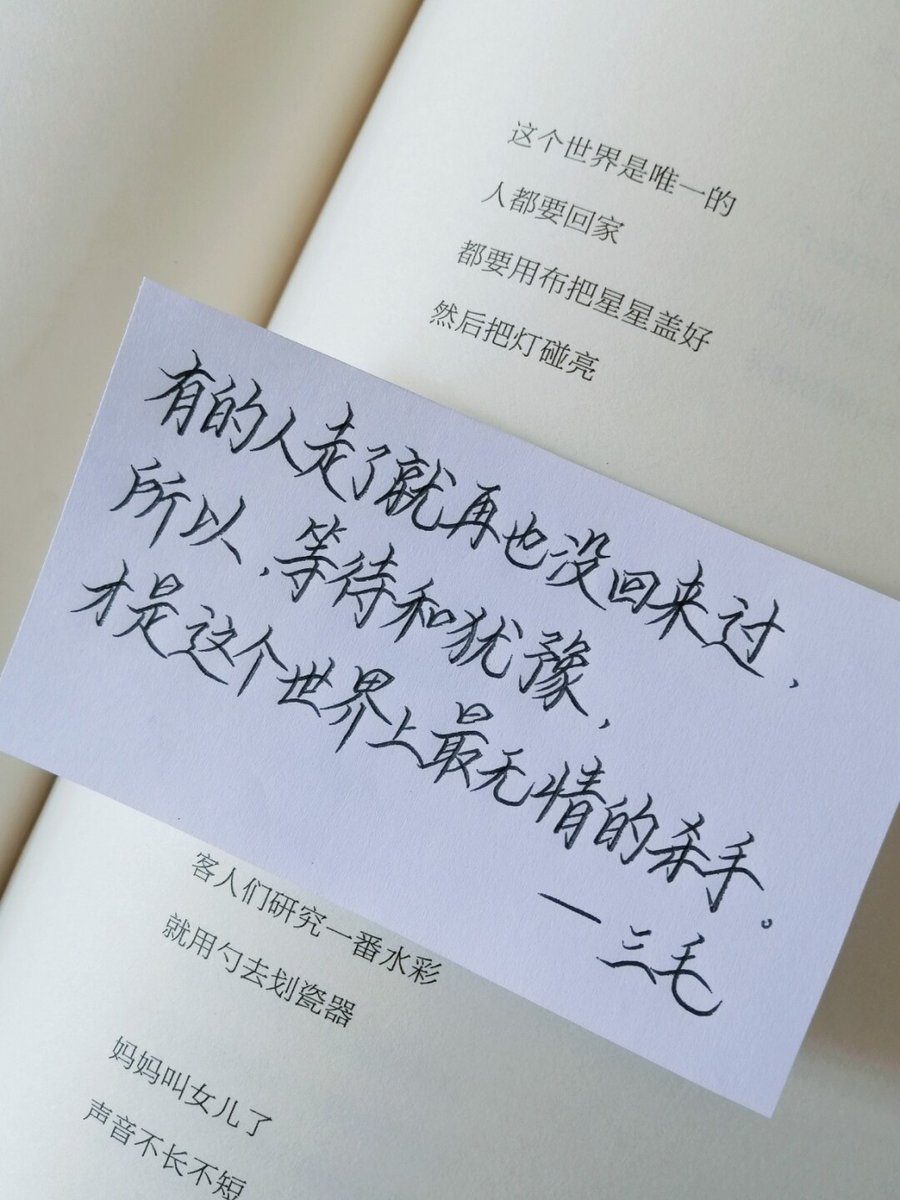 这个世界是唯一的
人都要回家
都要用布把星星盖好
然后把灯碰亮
有的人走了就再也没回来过,
所以,等待和犹豫,
才是这个世界上最无情的杀手。
—三毛
客人们研究一番水彩
就用勺去划瓷器
妈妈叫女儿了
声音不长不短